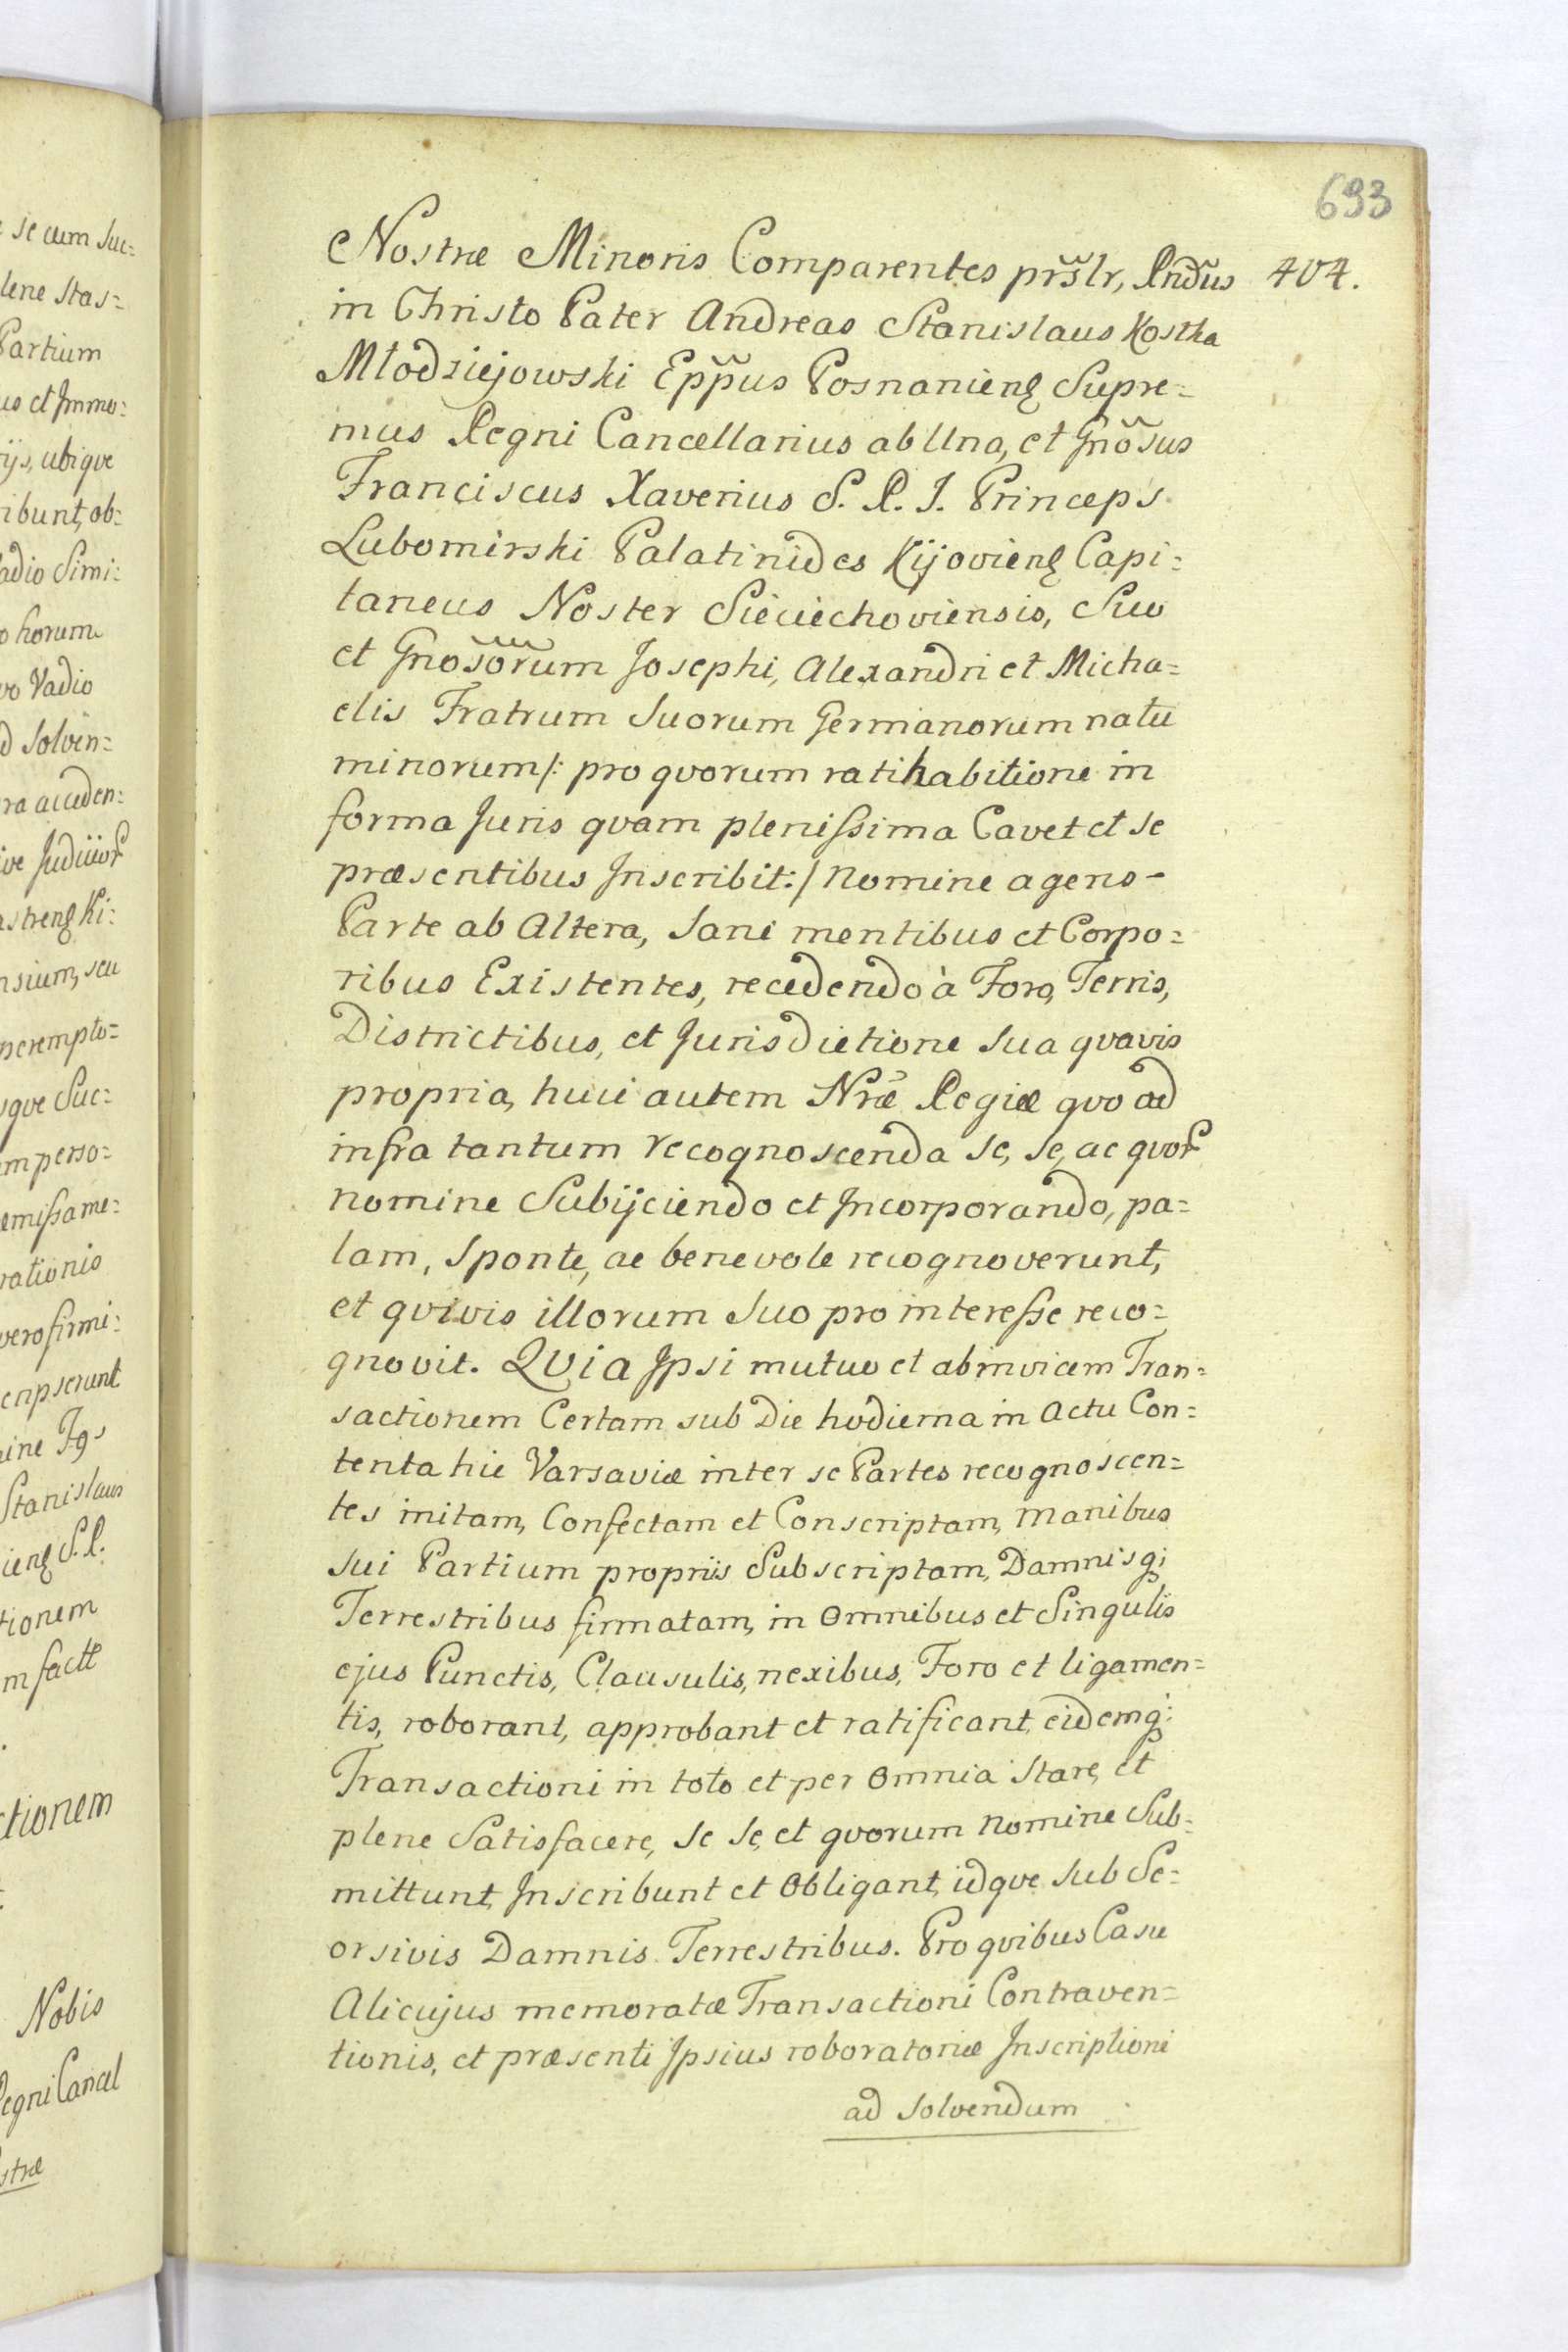 693
Nostræ Minoris Comparentes prs̃lr, Rñdus 404.
in Christo Pater Andreas Stanislaus Kostka
Młodziejowski Epp̃us Posnanieñ Supre=
mus Regni Cancellarius ab Una, et Gñosus
Franciscus Xaverius S. R. I. Princeps
Lubomirski Palatinides Kijovieñ Capi=
taneus Noster Sieciechoviensis, Suo
et Gños̃orum Josephi, Alexandri et Micha=
elis Fratrum Suorum Germanorum natu
minorum/: pro qvorum ratihabitione in
forma Juris qvam plenissima Cavet et se
præsentibus Inscribit:/ Nomine agens
Parte ab Altera, Sani mentibus et Corpo=
ribus Existentes, recedendo à Foro, Terris,
Districtibus, et Jurisdictione Sua qvavis
propria, huic autem Nræ̃ Regiæ qvo ad
infra tantum recognoscenda se, se, ac qvor̃
nomine Subijciendo et Incorporando, pa=
lam, Sponte, ac benevole recognoverunt,
et qvivis illorum Suo pro interesse reco=
gnovit. QVia Ipsi mutuo et abinvicem Tran=
sactionem Certam sub Die hodierna in Actu Con=
tenta hic Varsaviæ inter se Partes recognoscen=
tes initam, Confectam et Conscriptam, manibus
Sui Partium propriis Subscriptam, Damnisq;
Terrestribus firmatam, in Omnibus et Singulis
ejus Punctis, Clausulis, nexibus, Foro et ligamen=
tis, roborant, approbant et ratificant, eidemq;
Transactioni in toto et per Omnia Stare, et
plene Satisfacere, Se Se, et qvorum nomine Sub=
mittunt, Inscribunt et Obligant, idqve Sub Se=
orsivis Damnis Terrestribus. Pro qvibus Casu
Alicujus memoratæ Transactioni Contraven=
tionis, et præsenti Ipsius roboratoriæ Inscriptioni
ad Solvendum
se cum Suc=
Partium
ubiqve
ribunt, ob=
horum
Vadio
Solven=
Stanislaus
Nobis
Regni Cancel